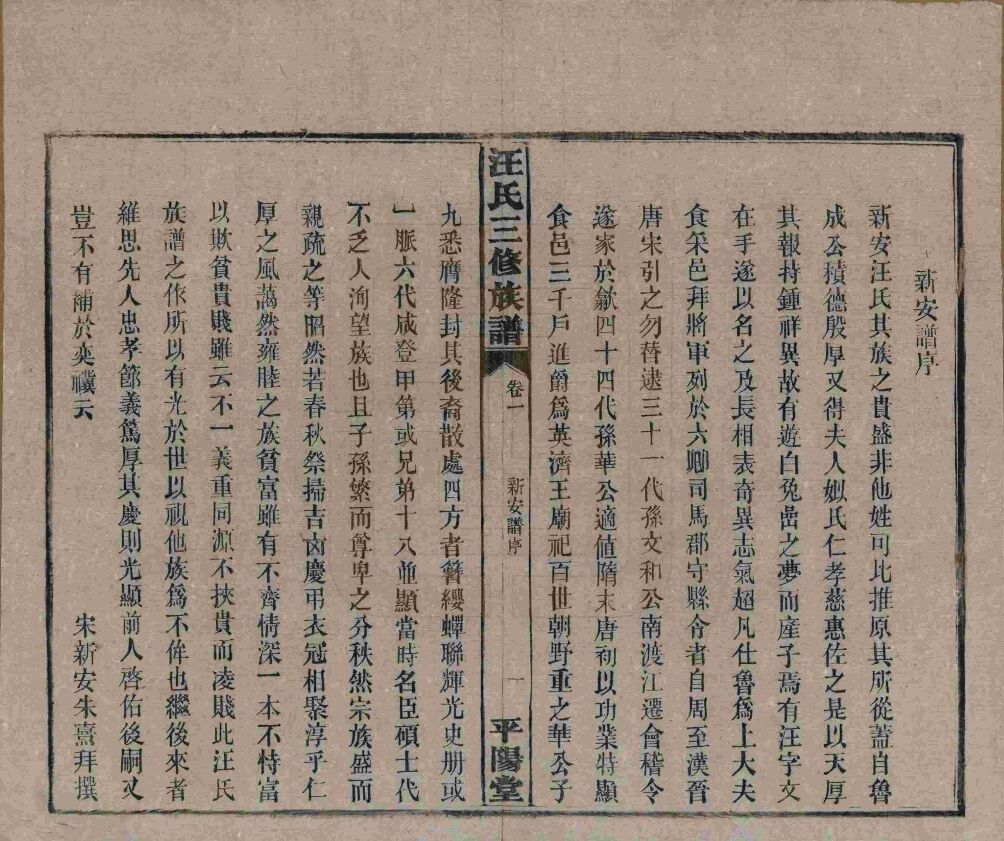 新安譜序
新安汪氏其族之貴盛非他姓可比推原其所從蓋自魯
成公積德殷厚又得夫人姒氏仁孝慈惠佐之是以天厚
其報持鍾祥異故有遊白兔嵒之夢而產子焉有汪字文
在手遂以名之及長相表奇異志氣超凡仕魯爲上大夫
食采邑拜將軍列於六卿司馬郡守縣令者自周至漢晉
唐宋引之勿替逮三十一代孫文和公南渡江遷會稽令
遂家於歙四十四代孫華公適値隋末唐初以功業特顯
食邑三千戶進爵爲英濟王廟祀百世朝野重之華公子
汪氏三修族譜
卷一
新安譜序
一
平陽堂
九悉膺隆封其後裔散處四方者簪纓蟬聯輝光史册或
一脈六代咸登甲第或兄弟十八並顯當時名臣碩士代
不乏人洵望族也且子孫繁而尊卑之分秩然宗族盛而
親疏之等昭然若春秋祭掃吉凶慶弔衣冠相聚淳乎仁
厚之風藹然雍睦之族貧富雖有不齊情深一本不恃富
以欺貧貴賤雖云不一義重同源不挾貴而凌賤此汪氏
族譜之作所以有光於世以視他族爲不侔也繼後來者
維思先人忠孝節義篤厚其慶則光顯前人啓佑後嗣又
豈不有補於奕禩云
宋新安朱熹拜撰